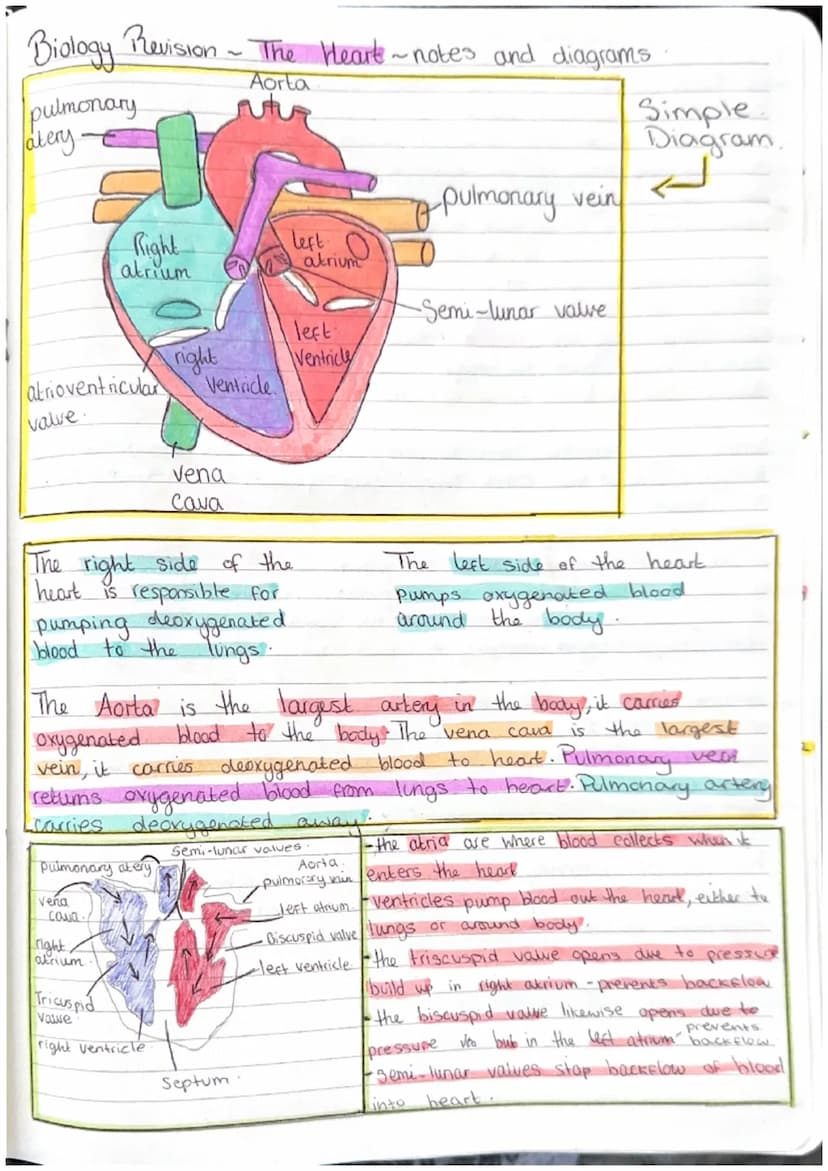 Biology Revision ~ The Heart ~ notes and diagrams.
Aorta
pulmonary
atery
Simple
Diagram.
pulmonary vein
Right
atrium
left
atrium
Semi-lunar valve
left
ventricle
right
ventricle
atrioventricular
valve.
vena
cava
The right side of the
heart is responsible for
pumping deoxygenated
blood to the lungs.
The left side of the heart
pumps oxygenated blood
around the body.
The Aorta is the largest artery in the body, it carries
oxygenated blood to the body. The vena cava is the largest
vein, it carries deoxygenated blood to heart. Pulmonary vein
returns oxygenated blood from lungs to heart. Pulmonary artery
carries deoxygenated away.
Semi-lunar values.
pulmonary atery
Aorta.
pulmonary vein
vena
cava.
left atrium.
Biscuspid valve
right
atrium.
left ventricle.
Tricuspid
valve
right ventricle
Septum.
-the atria are where blood collects when it
enters the heart
-ventricles pump blood out the heart, either to
lungs or around body.
-the triscuspid valve opens due to pressure
build up in right atrium - prevents backflow
-the biscuspid valve likewise opens due to
pressure but in the left atrium - prevents
backflow
-semi-lunar values stop backflow of blood
into heart.